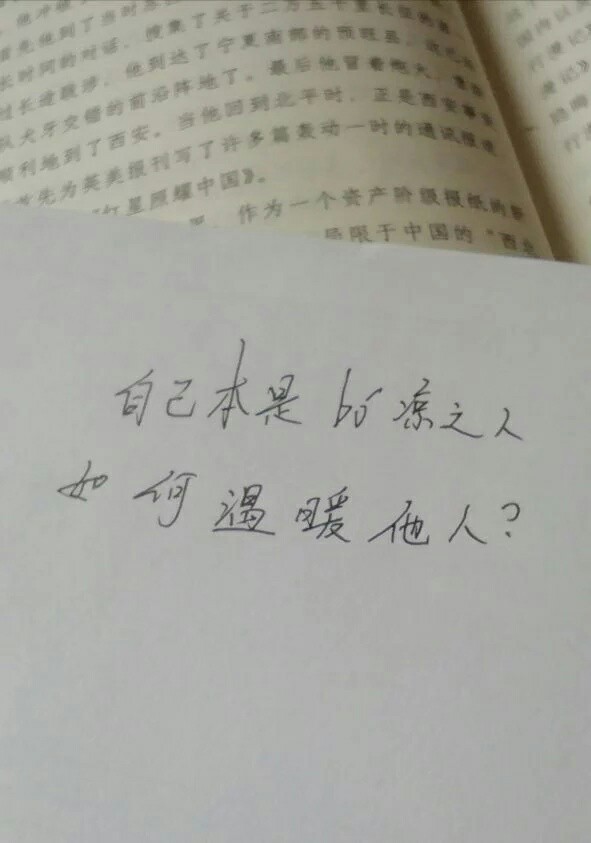 他冲破
首先他到了当时
长时间的对话，搜集了关于二万五千里长征的第
过长途跋涉，他到达了宁夏南部的预旺县，
犬牙交错的前沿阵地了。最后他冒着炮火，重新
顺利地到了西安。当他回到北平时，正是西安事
首先为英美报刊写了许多篇轰动一时的通讯报道
红星照耀中国》。
作为一个资产阶级报纸的新
局限于中国的“西北
国内以
行漫记
漫记》
隐晦
自己本是bó凉之人
如何温暖他人?